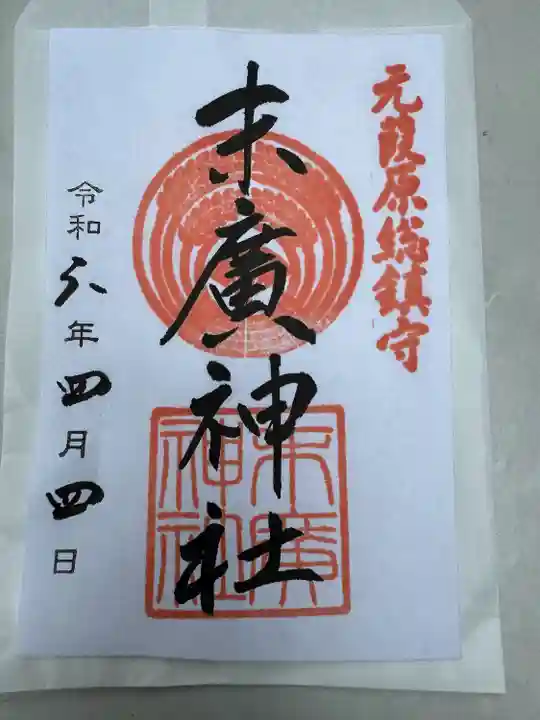 元葭原総鎮守
末廣神社
末廣神社
令和六年四月四日